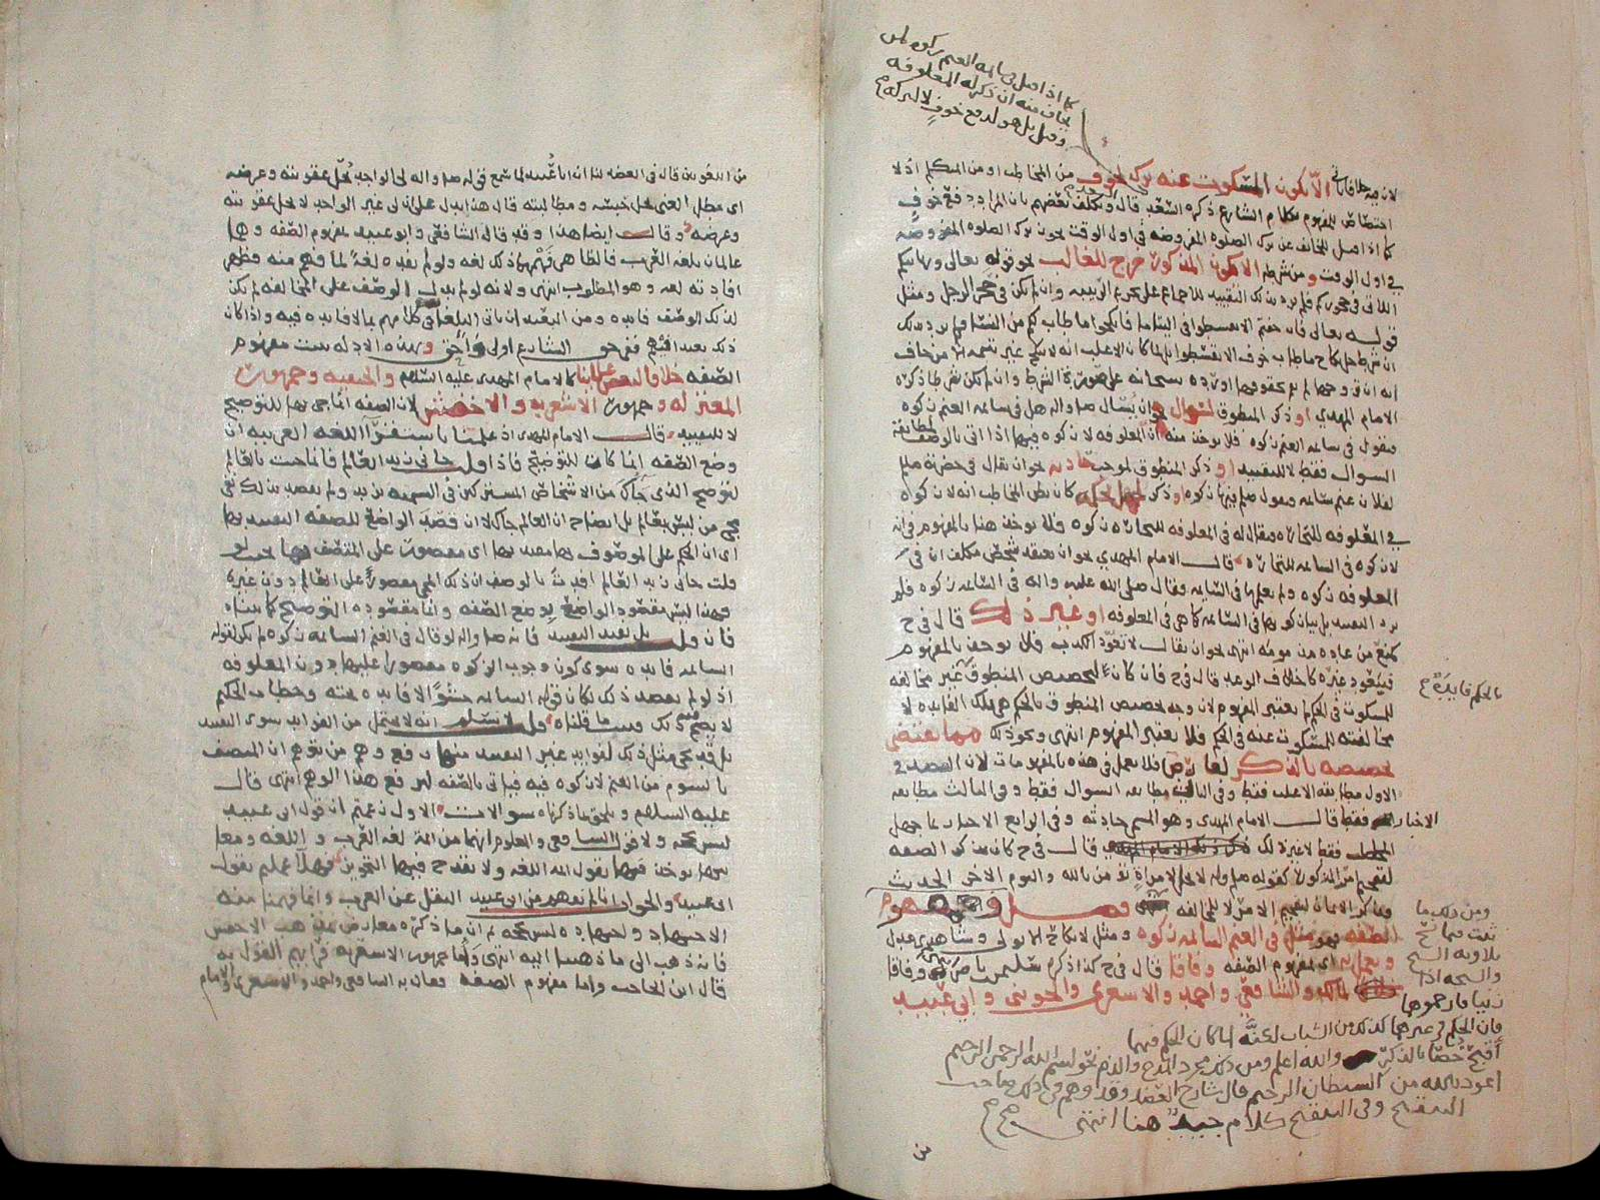 كما اذا قيل في سائمة الغنم زكوة
يخاف منه ان ذكر له المعلوفه
وقيل بل هو لدفع خوف لا لتركه
الا يكون المسكوت عنه ترك لخوف من المخاطب او من المتكلم اذ لا
اختصاص للمفهوم بكلام الشارع ذكره السعد قال وتكلف بعضهم بان المراد دفع خوف
كما اذا قيل للخائف عن ترك الصلوة المفروضه في اول الوقت يجوز ترك الصلوة المفروضه
في اول الوقت ومن شرطه الا يكون المذكور خرج للغالب نحو قوله تعالى وربائبكم
اللاتي في حجوركم فلم يرد بذلك التقييد للاجماع على تحريم الربيبه وان لم تكن في حجر الرجل ومثل
قوله تعالى فان خفتم الا تقسطوا في اليتامى فانكحوا ما طاب لكم من النسا فلم يرد بذلك
الامام المهدي او ذكر المنطوق لسوال نحو ان يسال صلى الله عليه واله هل في سائمة الغنم زكوة
فيقول في سائمة الغنم زكوة فلا يوخذ منه ان المعلوفه لا زكوة فيها اذا اتى بالوصف لمطابقة
السوال فقط لا للتقييد او ذكر المنطوق لموجب حادثه نحو ان يقال في حضرته صلعم
لفلان غنم سائمه فيقول صلعم فيها زكوة او ذكر لجهل بحكمه كان يظن المخاطب انه لا زكوة
في المعلوفه للتجاره فيقال له في المعلوفه للتجاره زكوة فلا يوخذ هنا بالمفهوم في انه
لا زكوة في السائمه للتجاره قال الامام المهدي نحو ان يعتقد شخص مكلف ان في
المعلوفه زكوة ولم يعلمها في السائمه فقال صلى الله عليه واله في السائمه زكوة فلم
يرد التقييد بل بيان كونها في السائمه كما هي في المعلوفه او غير ذلك قال في ح
فيتعود غيره كاخلاف الوعد قال في ح فان كان لتخصيص المنطوق غير مخالفه
للمسكوت في الحكم لم يعتبر المفهوم لان وجه تخصيص المنطوق بالحكم هي تلك الفايده لا
بالحكم فايدة ح
مخالفته للمسكوت عنه في الحكم فلا يعتبر المفهوم انتهى ونحو ذلك مما يقتضي
تخصيصه بالذكر فلا يعمل في هذه بالمفهومات لان القصد في
الاول مطابقة الاغلب فقط وفي الثاني مطابقة السوال فقط وفي الثالث مطابقة
الاخبار فقط قال الامام المهدي وهو المسمى حادثه وفي الرابع الاخبار بما جهل
المخاطب فقط لا غير ذلك ذكر ذلك الامام المهدي قال في ح كان يذكر الصفه
لتفخيم من المذكور كقوله صلعم لا يحل لامراة تؤمن بالله واليوم الاخر الحديث
وذكر الايمان لتفخيم الامر لا للمخالفه فصل ومفهوم
الصفه نحو مثل في الغنم السائمه زكوة ومثل لا نكاح الا بولي وشاهدي عدل
ويعمل به اي بمفهوم الصفه وفاقا قال في ح كذا ذكره
لمالك والشافعي واحمد والاشعري والجويني وابي عبيد
ومن ذلك ما
ثبت فيما نسخ
تلاوته الشيخ
والشيخه اذا
زنيا فارجموهما
فان الحكم في غيرهما كذلك من الشباب لكنه لما كان الحكم فيهما
اقبح خصا بالذكر والله اعلم ومن ذلك مجرد المدح والذم نحو بسم الله الرحمن الرحيم
اعوذ بالله من الشيطان الرجيم قال شارح العضد وقد وهم في ذلك صاحب
التنقيح وفي التنقيح كلام جيد هنا انتهى
من
من اللغويين قال في العضد لنا ان ابا عبيد لما سمع قوله صلى الله عليه واله لي الواجد يحل عقوبته وعرضه
اي مطل الغني يحل حبسه ومطالبته قال هذا يدل على ان لي غير الواجد لا يحل عقوبته
وعرضه وقال ايضا هذا وقد قال الشافعي وابو عبيد بمفهوم الصفه وهما
عالمان بلغة العرب فالظاهر فهمهما ذلك لغه ولو لم يفده لغة لما فهم منه فظهر
افادته لغه وهو المطلوب انتهى ولانه لو لم يدل الوصف على المخالفه لم يكن
لذلك الوصف فايده ومن البعيد ان ياتي البلغا في كلامهم بما لا فايده فيه واذا كان
ذلك بعيدا فيهم ففي حق الشارع اولى واحق وبهذه الادله يثبت مفهوم
الصفه خلافا لبعض علمائنا كالامام المهدي عليه السلام والحنفيه وجمهور
المعتزله وجمهور الاشعريه والاخفش لان الصفه انما جي بها للتوضيح
لا للتقييد قال الامام المهدي اذ علمنا باستقرا اللغه العربيه ان
وضع الصفه انما كان للتوضيح فاذا قيل جاني زيد العالم فانما جيت بالعالم
لتوضح الذي جاك من الاشخاص المشتركين في التسميه بزيد ولم تقصد بذلك نفي
مجي من ليس بعالم بل ايضاح ان العالم جاك لا ان قصد الواضع للصفه التقييد بها
اي ان الحكم على الموصوف بها مقيد بها اي مقصور على المتصف بها بحيث لو
قلت جاني زيد العالم افدت بالوصف ان ذلك المجي مقصور على العالم دون غيره
فهذا ليس مقصود الواضع بوضع الصفه وانما مقصوده التوضيح كما بيناه
فان قيل بل يفيد التقييد فانه صلى الله عليه واله لو قال في الغنم السائمه زكوة لم يكن لقوله
السائمه فايده سوى كون وجوب الزكوة مقصورا عليها دون المعلوفه
اذ لو لم يقصد ذلك لكان قوله السائمه حشوا لا فايده تحته وخطاب الحكيم
لا يصح فيه ذلك فثبت ما قلناه قيل لا نسلم انه لا يحتمل من الفوايد سوى التقييد
بل قد يجي مثل ذلك لفوايد غير التقييد منها دفع وهم من يتوهم ان المتصف
بالسوم من الغنم لا زكوة فيه فياتي بالصفه ليرفع هذا الوهم انتهى قال
عليه السلام ويلحق بما ذكرناه سوالات الاول زعمتم ان قول ابي عبيد
ليس بحجه ولا قول الشافعي والمعلوم انهما من ائمة لغة العرب واللغه ومعا
نيها يوخذ فيها بقول ائمة اللغه ولا يقدح فيها التجويز فهلا عملتم بقول
ابي عبيد والجواب انا لم نفهم من ابي عبيد النقل عن العرب وانما فهمنا منه
الاجتهاد واجتهاده ليس بحجه ثم ان ما ذكره معارض بمذهب الاخفش
فانه ذهب الى ما ذهبنا اليه انتهى واما جمهور الاشعريه
قال ابن الحاجب واما مفهوم الصفه فقال به الشافعي واحمد والاشعري والامام